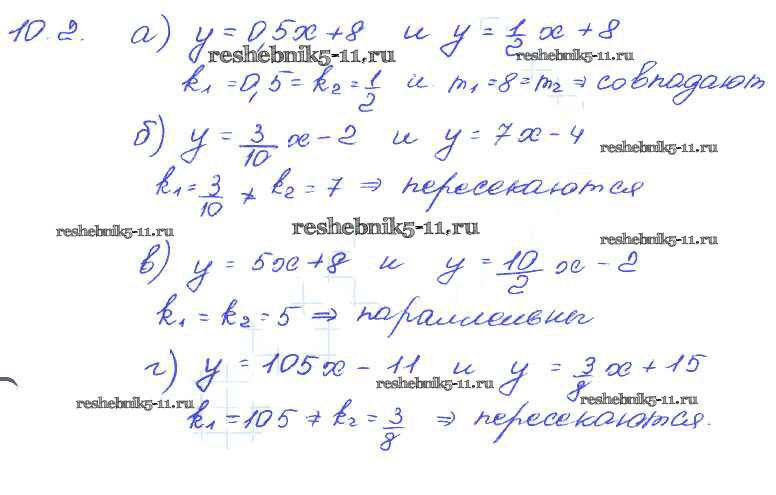 10.2. а) y = 0,5x + 8 и y = 1/2 x + 8
reshebnik5-11.ru reshebnik5-11.ru
k₁ = 0,5 = k₂ = 1/2 и m₁ = 8 = m₂ ⇒ совпадают
б) y = 3/10 x − 2 и y = 7x − 4
reshebnik5-11.ru
k₁ = 3/10 ≠ k₂ = 7 ⇒ пересекаются
reshebnik5-11.ru reshebnik5-11.ru reshebnik5-11.ru
в) y = 5x + 8 и y = 10/2 x − 2
k₁ = k₂ = 5 ⇒ параллельны
г) y = 105x − 11 и y = 3/8 x + 15
reshebnik5-11.ru
reshebnik5-11.ru reshebnik5-11.ru
k₁ = 105 ≠ k₂ = 3/8 ⇒ пересекаются.